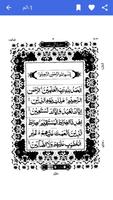 1-الم
بِسْمِ اللهِ الرَّحْمٰنِ الرَّحِيْمِ
اَلْحَمْدُ لِلّٰهِ رَبِّ الْعٰلَمِيْنَ الرَّحْمٰنِ
الرَّحِيْمِ مٰلِكِ يَوْمِ الدِّيْنِ اِيَّاكَ
نَعْبُدُ وَاِيَّاكَ نَسْتَعِيْنُ اِهْدِنَا
الصِّرَاطَ الْمُسْتَقِيْمَ صِرَاطَ الَّذِيْنَ
اَنْعَمْتَ عَلَيْهِمْ غَيْرِ الْمَغْضُوْبِ
عَلَيْهِمْ وَلَا الضَّآلِّيْنَ